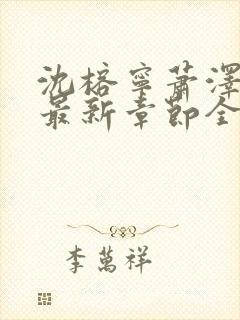 沈榕寧蕭澤
最新章節全
李萬祥